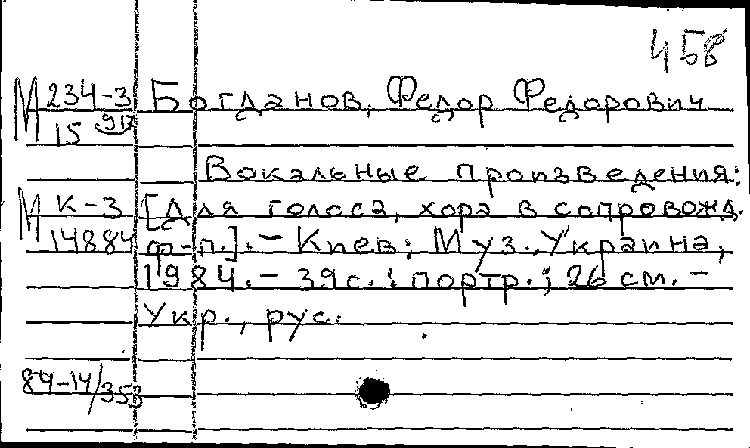 458
М 234-3 Богданов, Федор Федорович
15 913
Вокальные произведения:
М К-3 [Для голоса, хора в сопровожд.
14884 ф-п.]. - Киев: Муз. Украина,
1984. - 39 с.: портр.; 26 см. -
Укр., рус.
84-14/353